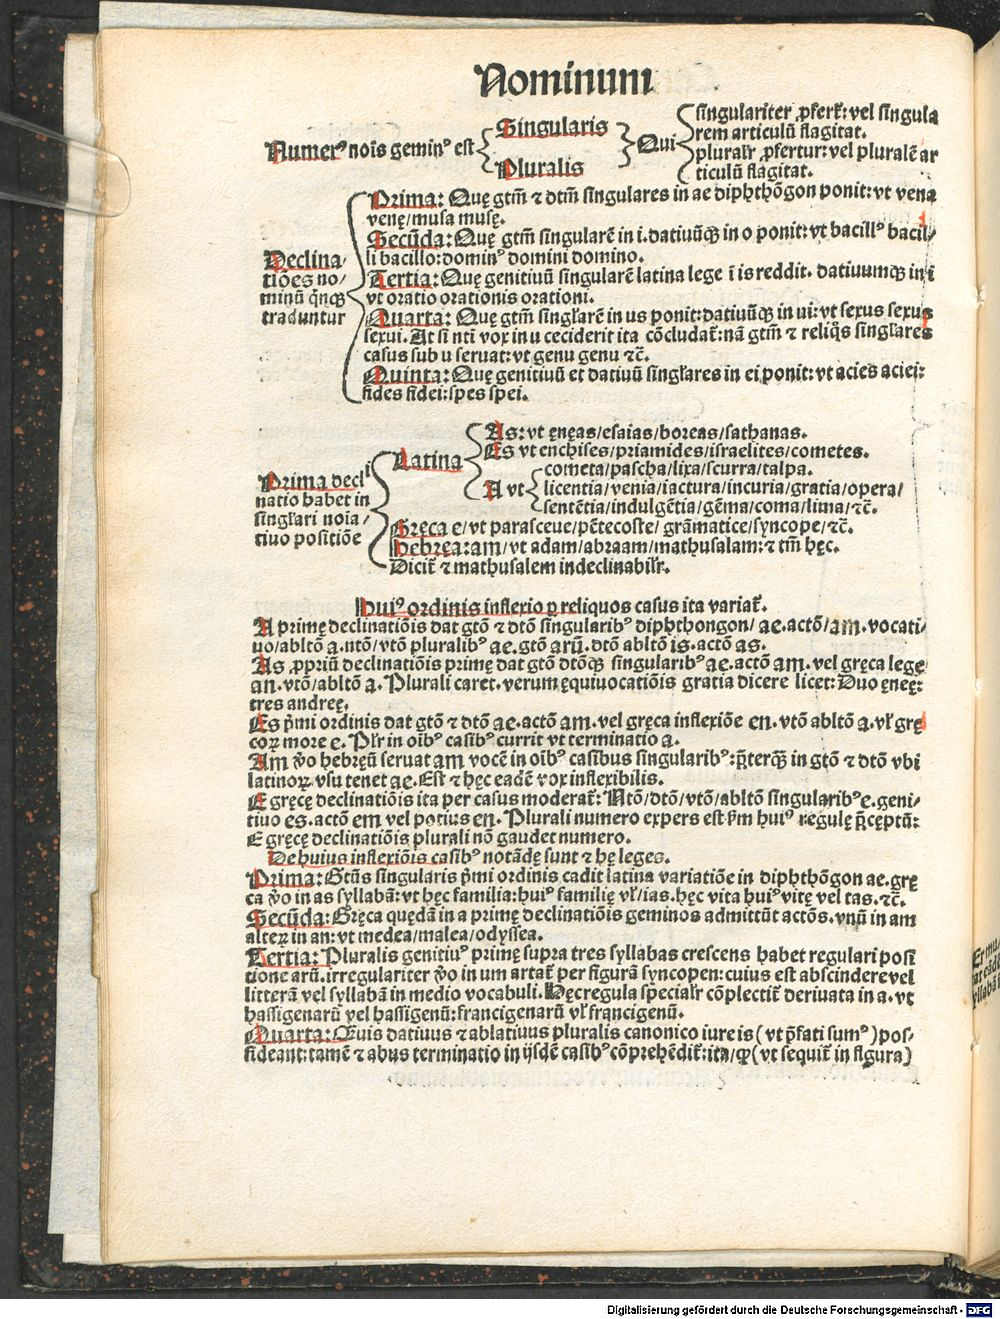 Nominum
Numerꝰ nois geminꝰ est
Singularis
Pluralis
Qui
singulariter ꝓfert̄: vel singula
rem articulū flagitat.
pluralr̄ ꝓfertur: vel pluralē ar
ticulū flagitat.
Declina/
tiōes no/
minū qͥnqꝫ
traduntur
Prima: Quę gtm̄ ⁊ dtm̄ singulares in ae diphthōgon ponit: vt vena
venę/musa musę.
Secūda: Quę gtm̄ singularē in i. datiuūqꝫ in o ponit: vt bacillꝰ bacil/
li bacillo: dominꝰ domini domino.
Tertia: Que genitiuū singularē latina lege ī is reddit. datiuumqꝫ in i
vt oratio orationis orationi.
Quarta: Quę gtm̄ singl̄arē in us ponit: datiuūqꝫ in ui: vt sexus sexus
sexui. At si nti vox in u ceciderit ita cōcludat̄: nā gtm̄ ⁊ reliqͦs singl̄ares
casus sub u seruat: vt genu genu ⁊c̄.
Quinta: Quę genitiuū et datiuū singl̄ares in ei ponit: vt acies aciei:
fides fidei: spes spei.
Prima decl
natio habet in
singl̄ari noia/
tiuo positiōe
Latina
As: vt ęnęas/esaias/boreas/sathanas.
Es vt enchises/priamides/israelites/cometes.
A vt
cometa/pascha/lixa/scurra/talpa.
licentia/venia/iactura/incuria/gratia/opera/
sentētia/indulgētia/gēma/coma/lima/⁊c̄.
Gręca e/vt parasceue/pētecoste/ grāmatice/syncope/⁊c̄.
Hebręa: am/vt adam/abraam/mathusalam: ⁊ tm̄ hęc.
Dicit̄ ⁊ mathusalem indeclinabilr̄.
Huiꝰ ordinis inflexio ꝑ reliquos casus ita variat̄.
A primę declinatiōis dat gtō ⁊ dtō singularibꝰ diphthongon/ ae. actō/am. vocati/
uo/abltō a. ntō/vtō pluralibꝰ ae. gtō arū. dtō abltō is. actō as.
As ꝓpriū declinatiōis primę dat gtō dtōqꝫ singularibꝰ ae. actō am. vel gręca lege
an. vtō/abltō a. Plurali caret. verum ęquiuocatiōis gratia dicere licet: Duo ęneę:
tres andreę.
Es pͥmi ordinis dat gtō ⁊ dtō ae. actō am. vel gręca inflexiōe en. vtō abltō a. vl̄ grę
coꝝ more e. Plr̄ in oībꝰ casibꝰ currit vt terminatio a.
Am v̄o hebręū seruat am vocē in oībꝰ casibus singularibꝰ: p̄terqꝫ̄ in gtō ⁊ dtō vbi
latinoꝝ vsu tenet ae. Est ⁊ hęc eadē vox inflexibilis.
E gręcę declinatiōis ita per casus moderat̄: Ntō/dtō/vtō/abltō singularibꝰ e. geni/
tiuo es. actō em vel potius en. Plurali numero expers est s̄m huiꝰ regulę p̄cęptū:
E gręcę declinatiōis plurali nō gaudet numero.
De huius inflexiōis casibꝰ notādę sunt ⁊ hę leges.
Prima: Gtūs singularis pͥmi ordinis cadit latina variatiōe in diphthōgon ae. grę
ca v̄o in as syllabā: vt hęc familia: huiꝰ familię vl̄/ias. hęc vita huiꝰ vitę vel tas. ⁊c̄.
Secūda: Gręca quędā in a primę declinatiōis geminos admittūt actōs. vnū in am
alteꝝ in an: vt medea/malea/odyssea.
Tertia: Pluralis genitiuꝰ primę supra tres syllabas crescens habet regulari posi
tione arū. irregulariter v̄o in um artat̄ per figurā syncopen: cuius est abscindere vel
litterā vel syllabā in medio vocabuli. Hęc regula specialr̄ cōplectit̄ deriuata in a. vt
hassigenarū vel hassigenū: francigenarū vl̄ francigenū.
Quarta: Quis datiuus ⁊ ablatiuus pluralis canonico iure is (vt p̄fati sumꝰ) pos/
sideant: tamē ⁊ abus terminatio in ijsdē casibꝰ cōprehēdit̄: ita/ꝙ (vt sequit̄ in figura)
Digitalisierung gefördert durch die Deutsche Forschungsgemeinschaft - DFG